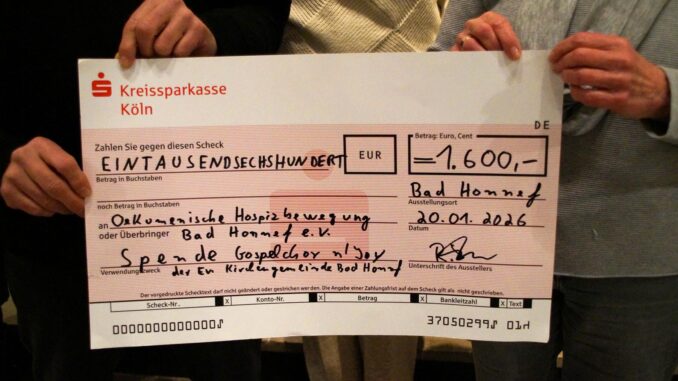 Kreissparkasse
Köln
DE
Zahlen Sie gegen diesen Scheck
Betrag: Euro, Cent
EINTAUSENDSECHSHUNDERT EUR =1.600,-
Betrag in Buchstaben
noch Betrag in Buchstaben
Bad Honnef
Ausstellungsort
an Oekumenische Hospizbewegung
20.01.2026
oder Überbringer Bad Honnef e.V.
Datum
Spende Gospelchor n'Joy
Verwendungszweck der Ev Kirchengemeinde Bad Honnef
Unterschrift des Ausstellers
Der vorgedruckte Schecktext darf nicht geändert oder gestrichen werden. Die Angabe einer Zahlungsfrist auf dem Scheck gilt als nicht geschrieben.
Scheck-Nr. X Konto-Nr. X Betrag X Bankleitzahl X Text
0000000000000 37050299 01